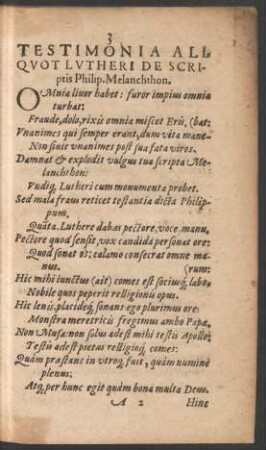 3
TESTIMONIA ALI
QVOT LVTHERI DE SCRI-
ptis Philip. Melanchthon.
OMnia liuor habet: furor impius omnia
turbat:
Fraude, dolo, rixis omnia miscet Eris, (bat:
Vnanimes qui semper erant, dum vita mane-
Non sinit vnanimes post sua fata viros.
Damnat & explodit vulgus tua scripta Me-
lanchthon:
Vndiq, Lutheri cum monumenta probet.
Sed mala fraus reticet testantia dicta Philip-
pum,
Quãta, Luthere dabas pectore, voce, manu,
Pectore quod sensit, vox candida personat ore:
Quod sonat os: calamo consecrat omne ma-
nus. (rum:
Hic mihi iunctus (ait) comes est sociusq, labo-
Nobile quos peperit relligionis opus.
Hic lenis, placideq, sonans ego plurimus ore:
Monstra meretricis fregimus ambo Papæ.
Non Musæ: non solus adest mihi testis Apollo:
Testis adest pietas relligioq, comes:
Quàm præstans in vtroq, fuit, quàm numine
plenus:
Atq, per hunc egit quàm bona multa Deus.
A 2 Hinc